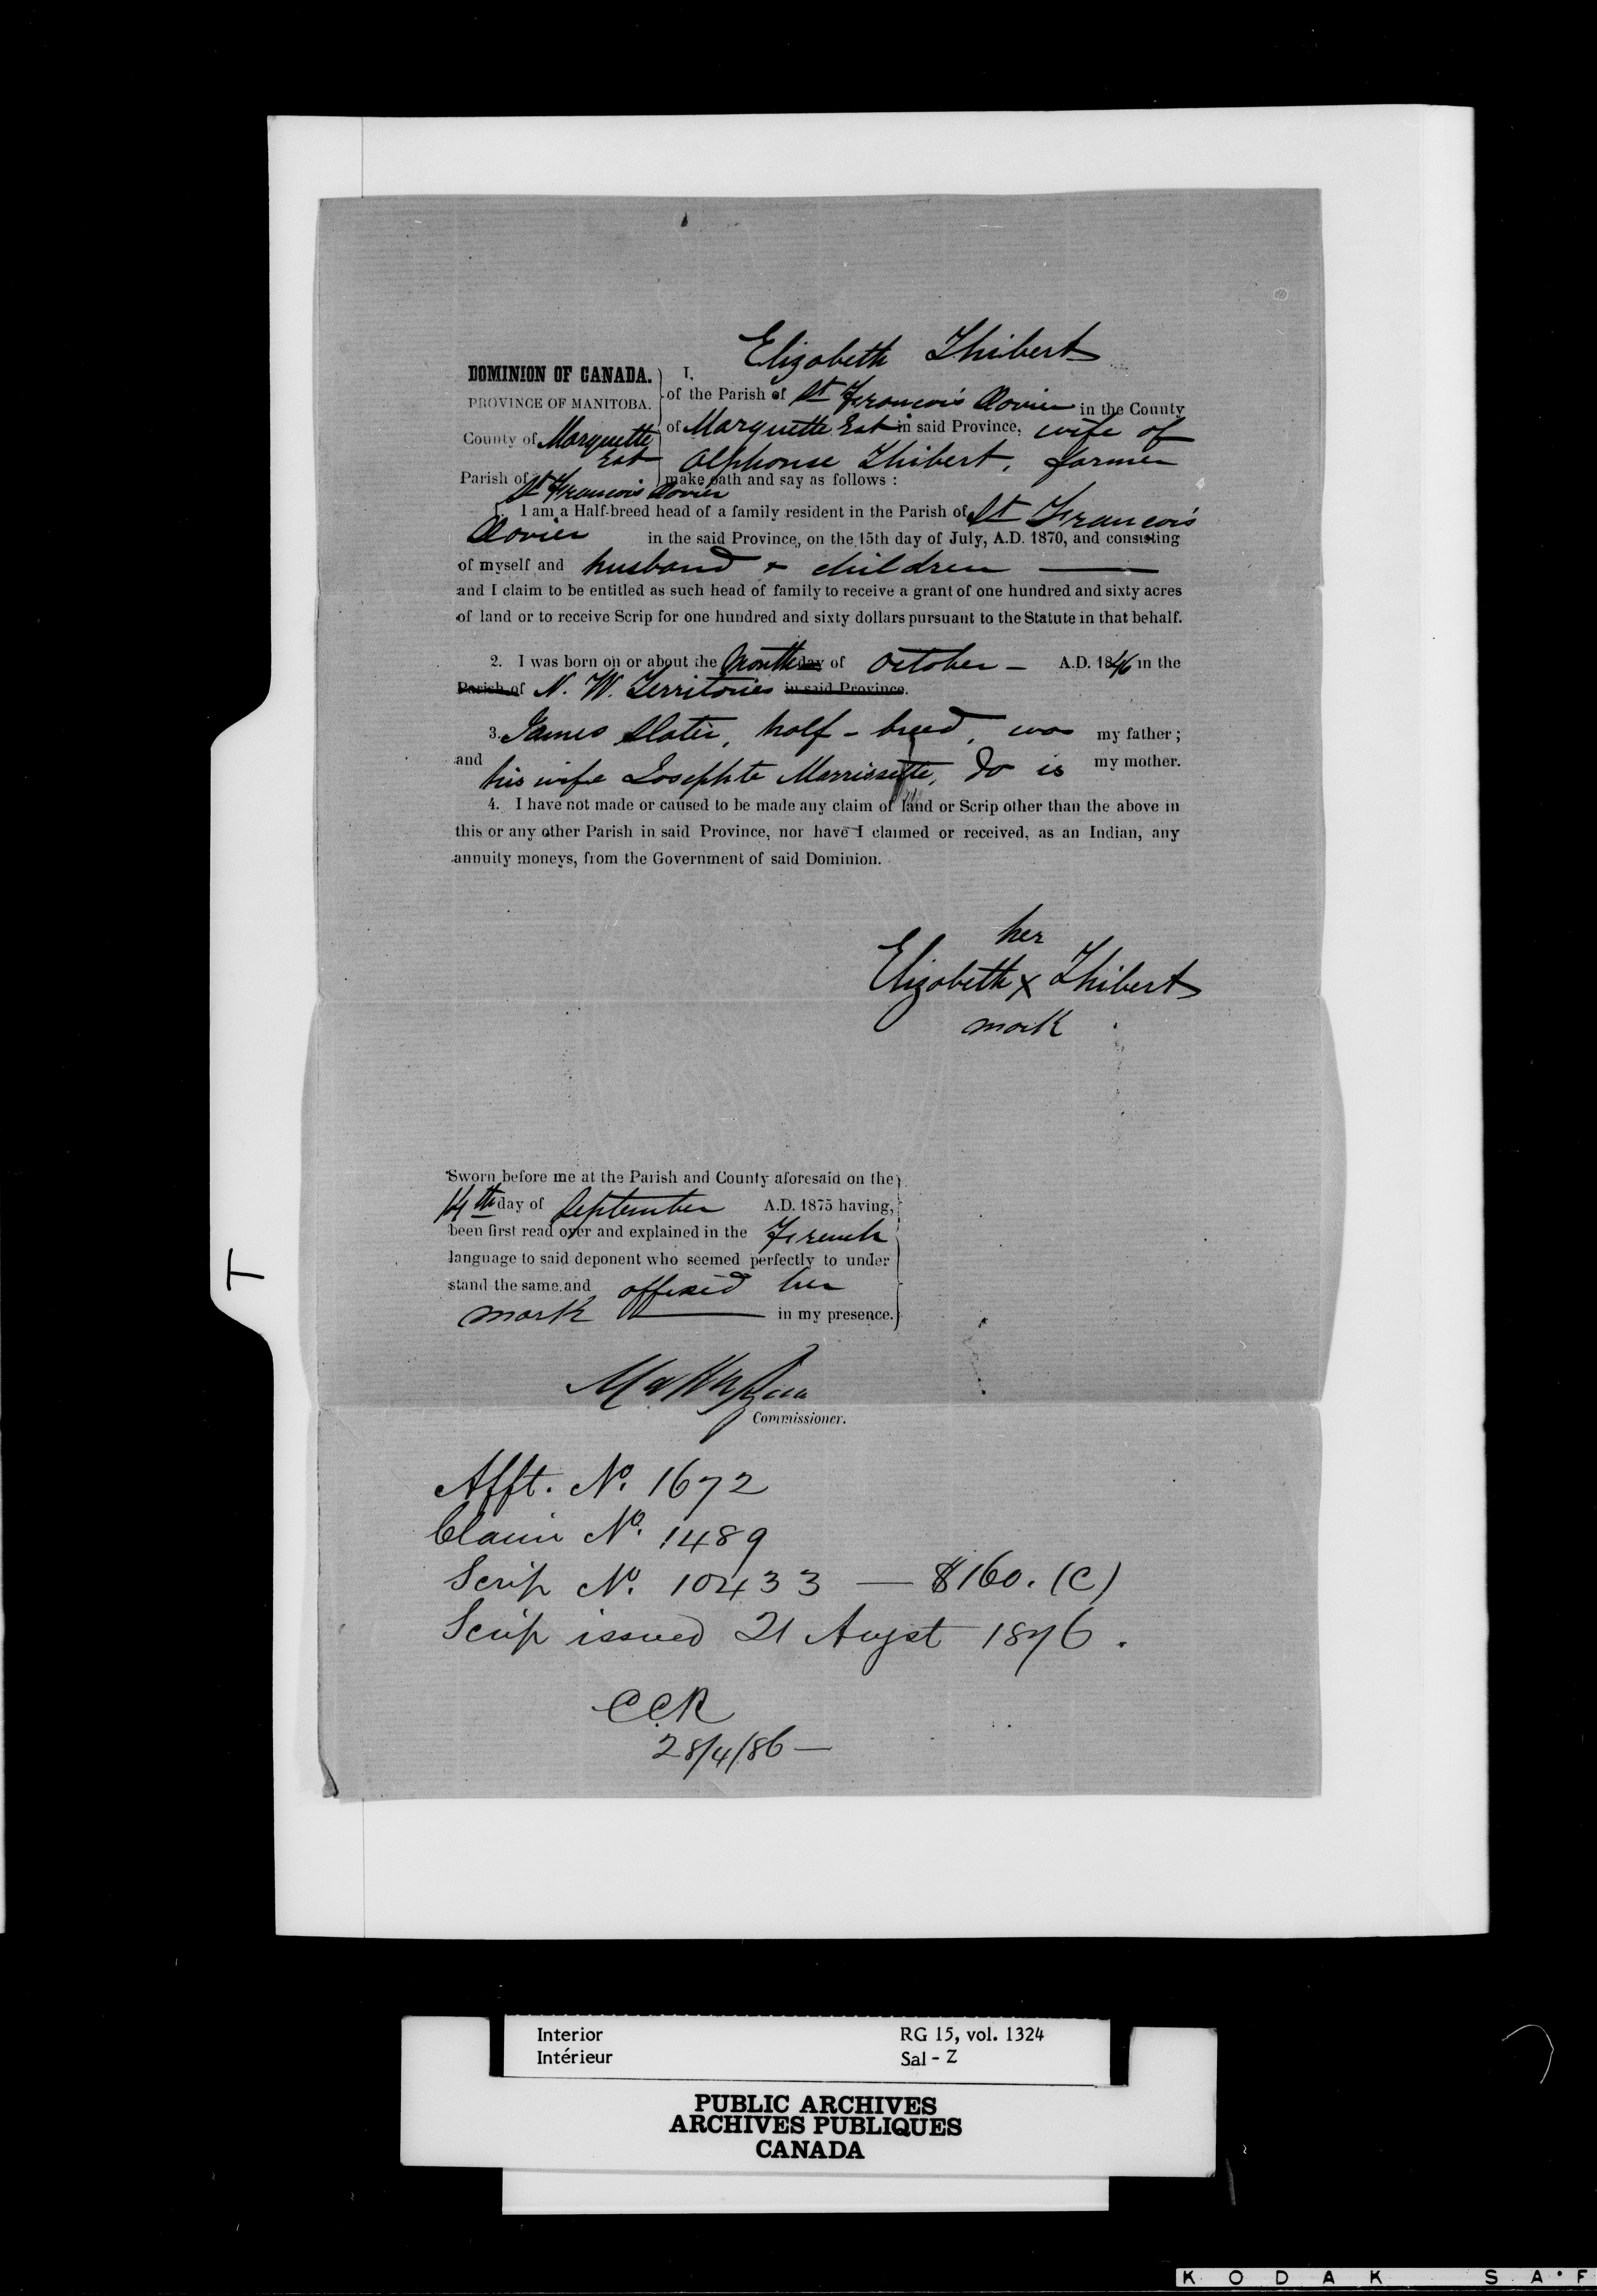 Elizabeth Thibert
DOMINION OF CANADA. I,
PROVINCE OF MANITOBA. of the Parish of St François Xavier in the County
County of Marquette East of Marquette East in said Province, wife of
Alphonse Thibert, farmer
Parish of St François Xavier make oath and say as follows :
I am a Half-breed head of a family resident in the Parish of St François
Xavier in the said Province, on the 15th day of July, A.D. 1870, and consisting
of myself and husband & children
and I claim to be entitled as such head of family to receive a grant of one hundred and sixty acres
of land or to receive Scrip for one hundred and sixty dollars pursuant to the Statute in that behalf.
2. I was born on or about the Month day of October - A.D. 1846 in the
Parish of N. W. Territories in said Province.
3. James Slater, half-breed, was my father ;
and his wife Josephte Morrissette, do is my mother.
4. I have not made or caused to be made any claim of land or Scrip other than the above in
this or any other Parish in said Province, nor have I claimed or received, as an Indian, any
annuity moneys, from the Government of said Dominion.
her
Elizabeth x Thibert
mark
Sworn before me at the Parish and County aforesaid on the
14th day of September A.D. 1875 having,
been first read over and explained in the French
language to said deponent who seemed perfectly to under
stand the same and affixed her
mark in my presence.
Commissioner.
Afft. No. 1672
Claim No. 1489
Scrip No. 10433 — $160. (C)
Scrip issued 21 Augst 1876.
CCR
28/4/86 —
T
Interior RG 15, vol. 1324
Intérieur Sal - Z
PUBLIC ARCHIVES
ARCHIVES PUBLIQUES
CANADA
KODAK SAF